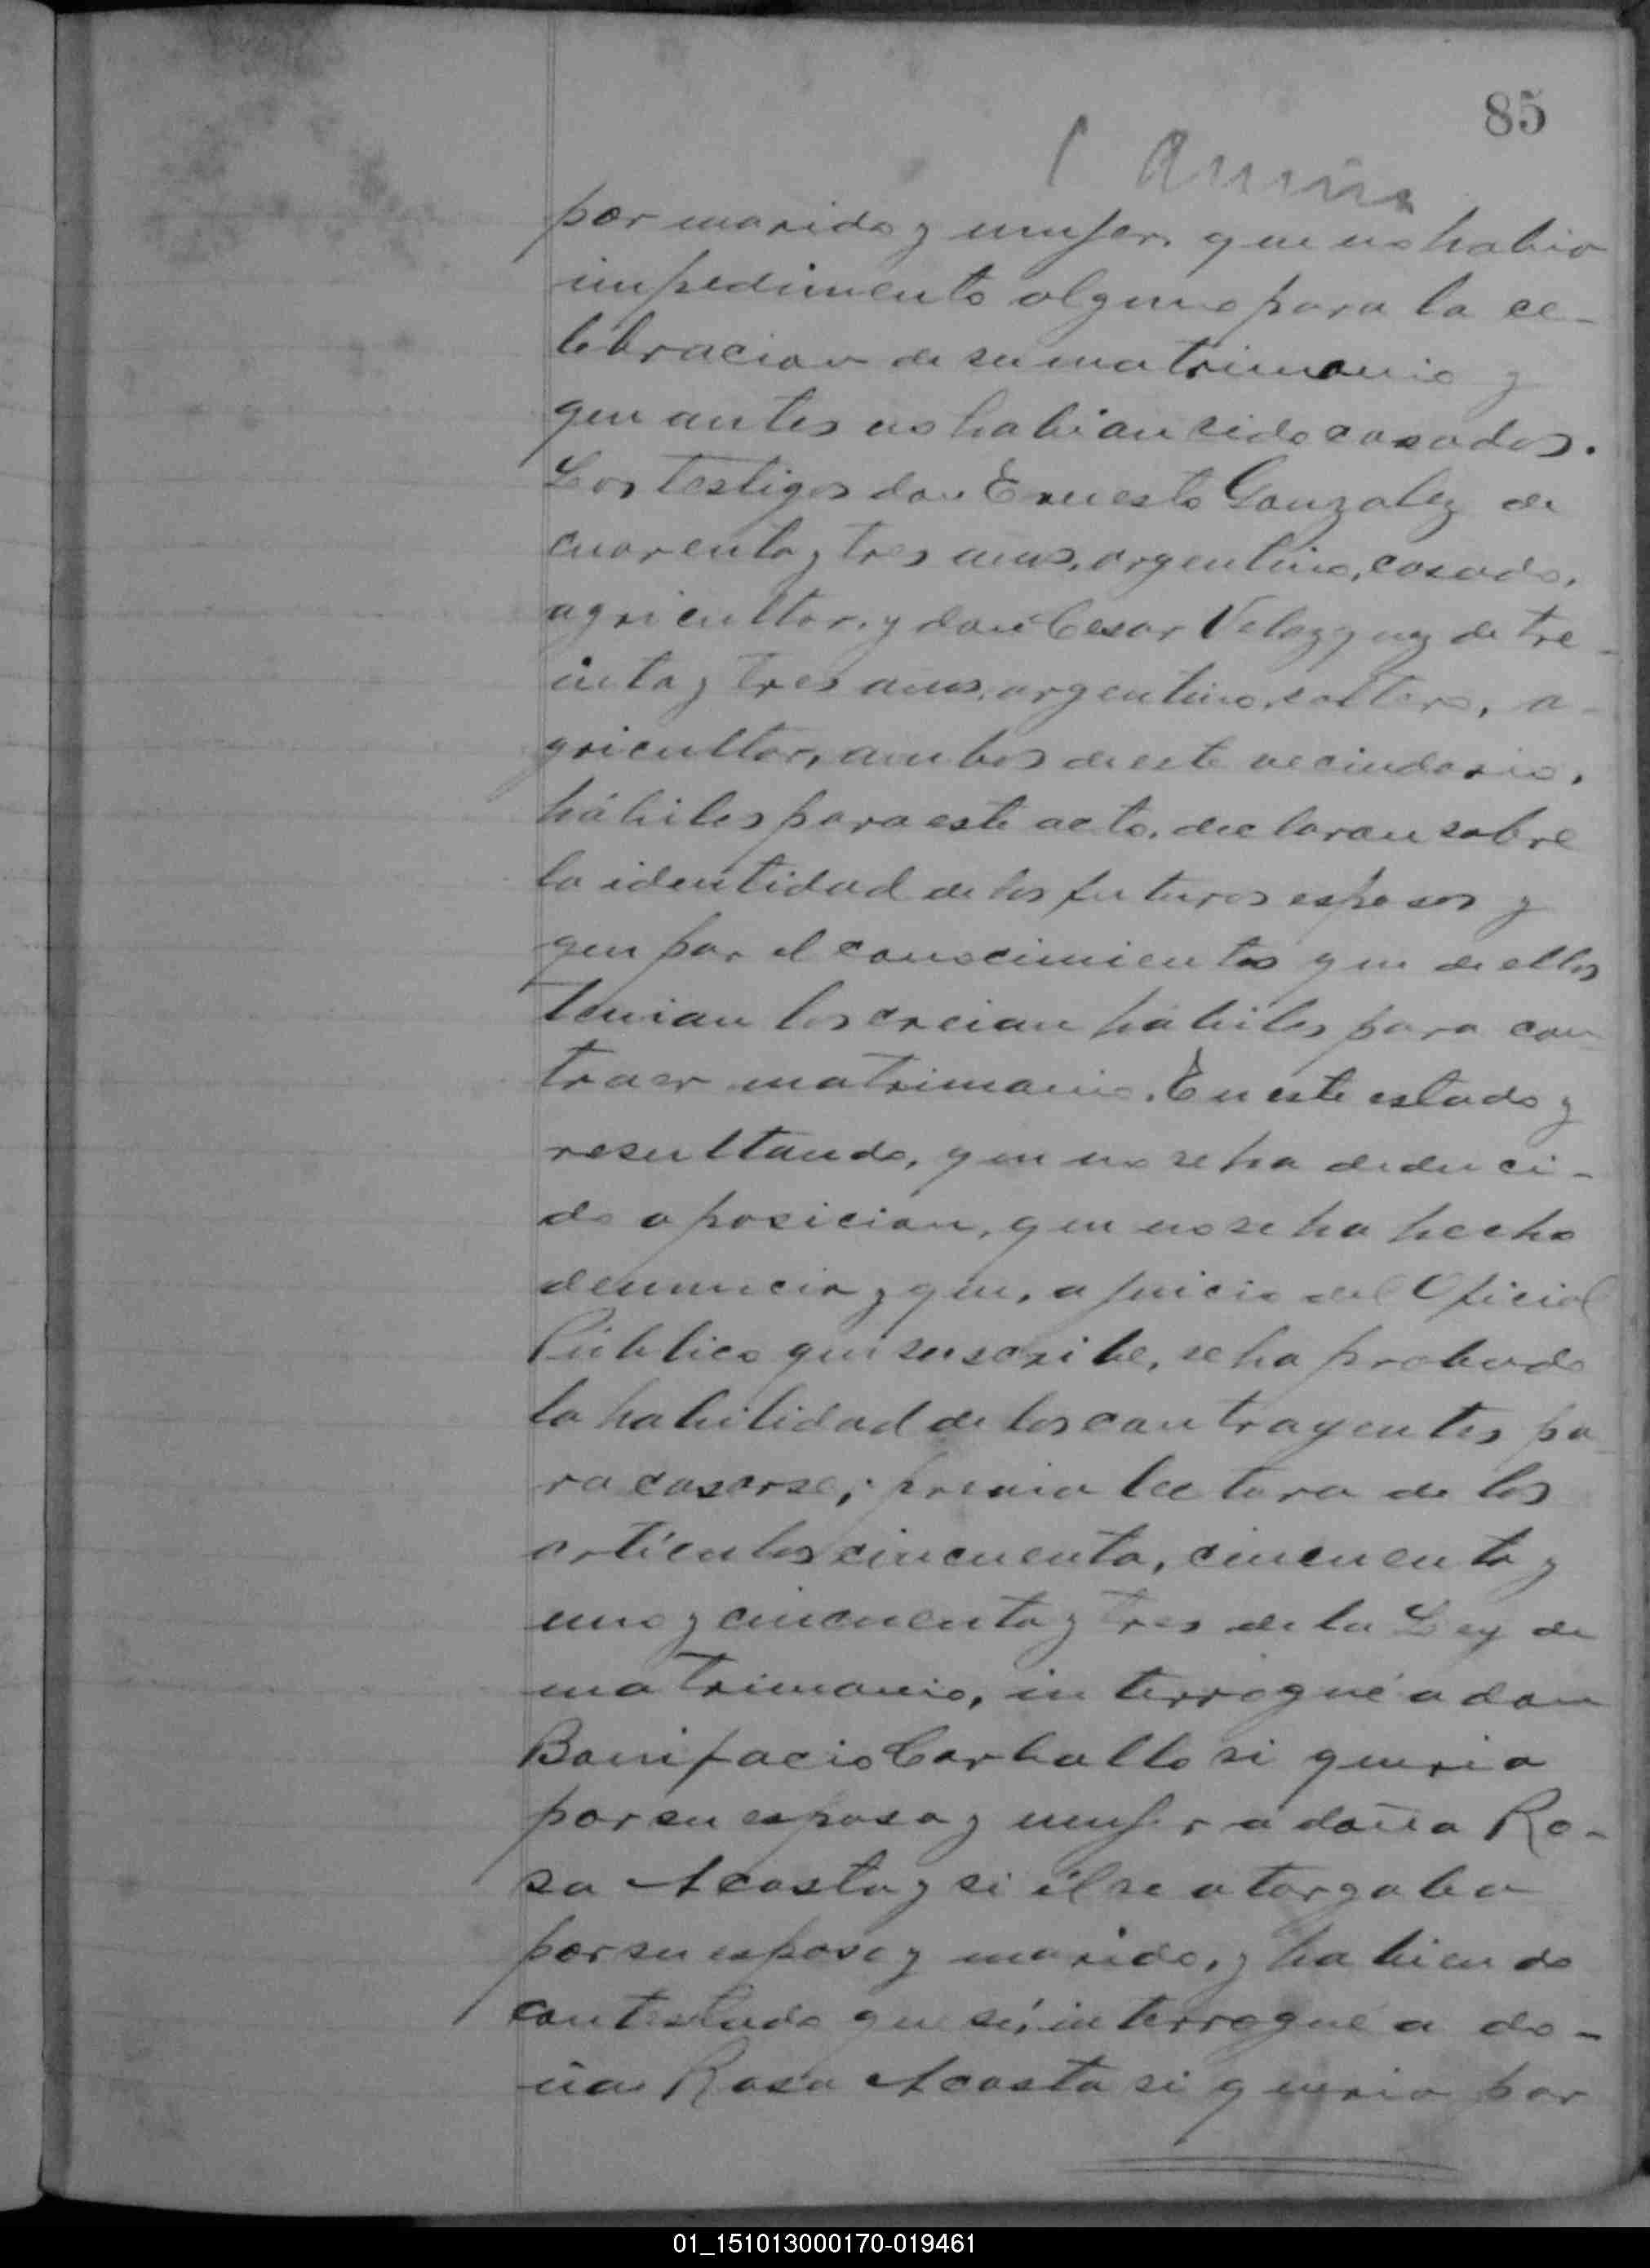 85
por marido y mujer, que no habia
impedimento alguno para la ce-
lebracion de su matrimonio y
que antes no habian sido casados.
Los testigos don Ernesto Gonzalez de
cuarenta y tres anos, argentino, casado,
agricultor, y don Cesar Velazquez de tre-
inta y tres anos, argentino, soltero, a-
gricultor, ambos de este vecindario,
hábiles para este acto, declaran sobre
la identidad de los futuros esposos y
que por el conocimiento que de ellos
tenian los creian hábiles para con
traer matrimonio. En este estado y
resultando, que no se ha deduci-
do oposicion, que no se ha hecho
denuncia y que, a juicio del Oficial
Público que suscribe, se ha probado
la habilidad de los contrayentes pa
ra casarse; previa lectura de los
artículos cincuenta, cincuenta y
uno y cincuenta y tres de la Ley de
matrimonio, interrogué a don
Bonifacio Carballo si queria
por su esposa y mujer a doña Ro-
sa Acosta y si él se otorgaba
por su esposo y marido, y habiendo
contestado que sí, interrogué a do-
ña Rosa Acosta si queria por
01_151013000170-019461